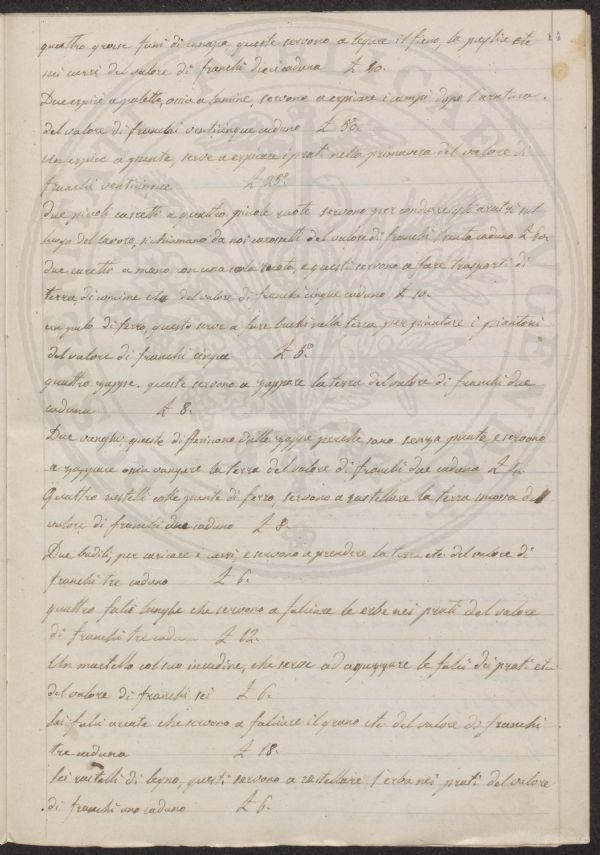 quattro grosse funi di canapa, queste servono a legare il fieno, la paglia etc
sui carri del valore di franchi dieci caduna £ 40.
Due erpici a palette, ossia a lamine, servono a erpicare i campi dopo l'aratura
del valore di franchi venticinque caduno £ 50.
Un erpice a punte, serve a erpicare i prati nella primavera del valore di
franchi venticinque £ 25.
Due piccoli carretti a quattro piccole ruote servono per condurre gli aratri sul
luogo del lavoro, si chiamano da noi del valore di franchi trenta caduno £ 60.
due carette a mano con una sola ruota, e questi servono a fare trasporti di
terra, di concime etc del valore di franchi cinque caduno £ 10.
un palo di ferro, questo serve a fare buchi nella terra per piantare i piantoni
del valore di franchi cinque £ 5.
quattro zappe. queste servono a zappare la terra del valore di franchi due
caduna £ 8.
Due vanghe, queste differiscono dalle zappe perché sono senza punte, e servono
a zappare ossia vangare la terra del valore di franchi due caduna £ 4.
Quattro rastelli colle punte di ferro, servono a rastellare la terra smossa del
valore di franchi due caduno £ 8.
Due badili, per caricare i carri e servono a prendere la terra etc. del valore di
franchi tre caduno £ 6.
quattro falci lunghe che servono a falciare le erbe nei prati del valore
di franchi tre caduna £ 12.
Un martello col suo incudine, che serve ad aguzzare le falci dei prati etc.
del valore di franchi sei £ 6.
Sei falci arcate che servono a falciare il grano etc. del valore di franchi
tre caduna £ 18.
Sei rastelli di legno, questi servono a rastellare l'erba nei prati del valore
di franchi uno caduno £ 6.